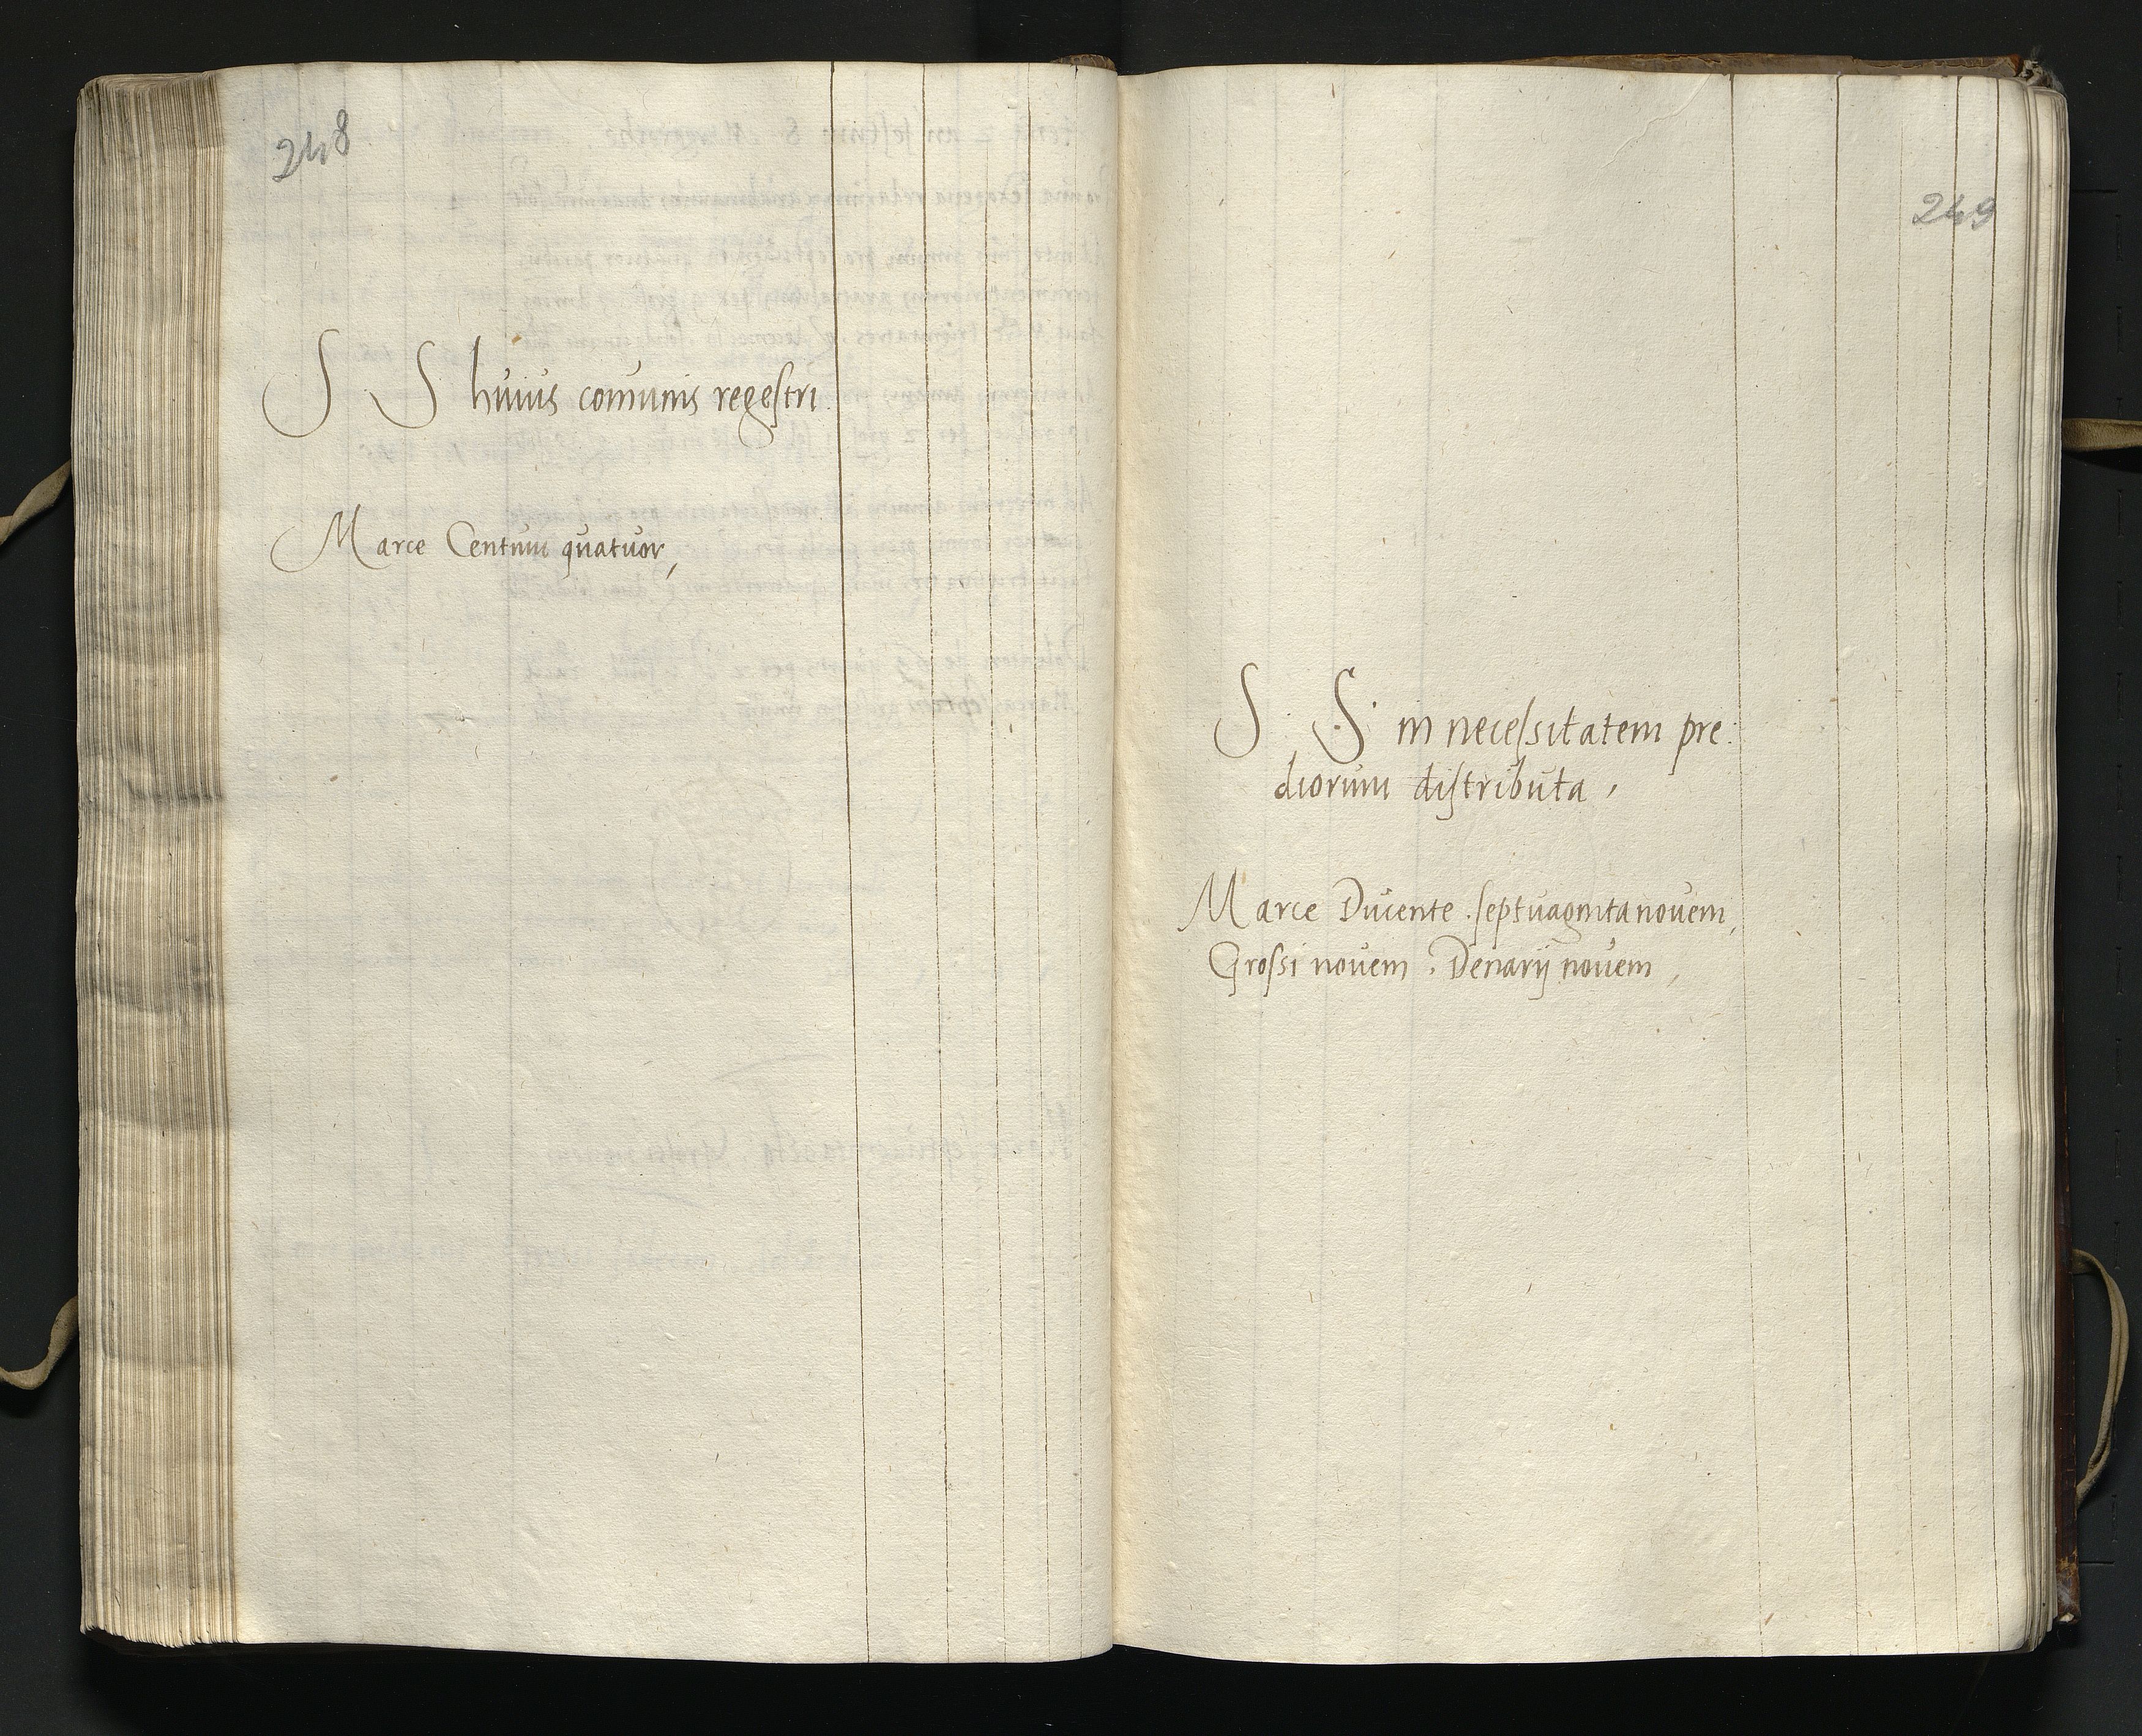 248
S S huius comunis regestri.
Marce Centum quatuor,
249
S. S. in necessitatem pre:
diorum distributa,
Marce Ducente. septuagintanouem,
Grossi nouem. Denarij nouem,